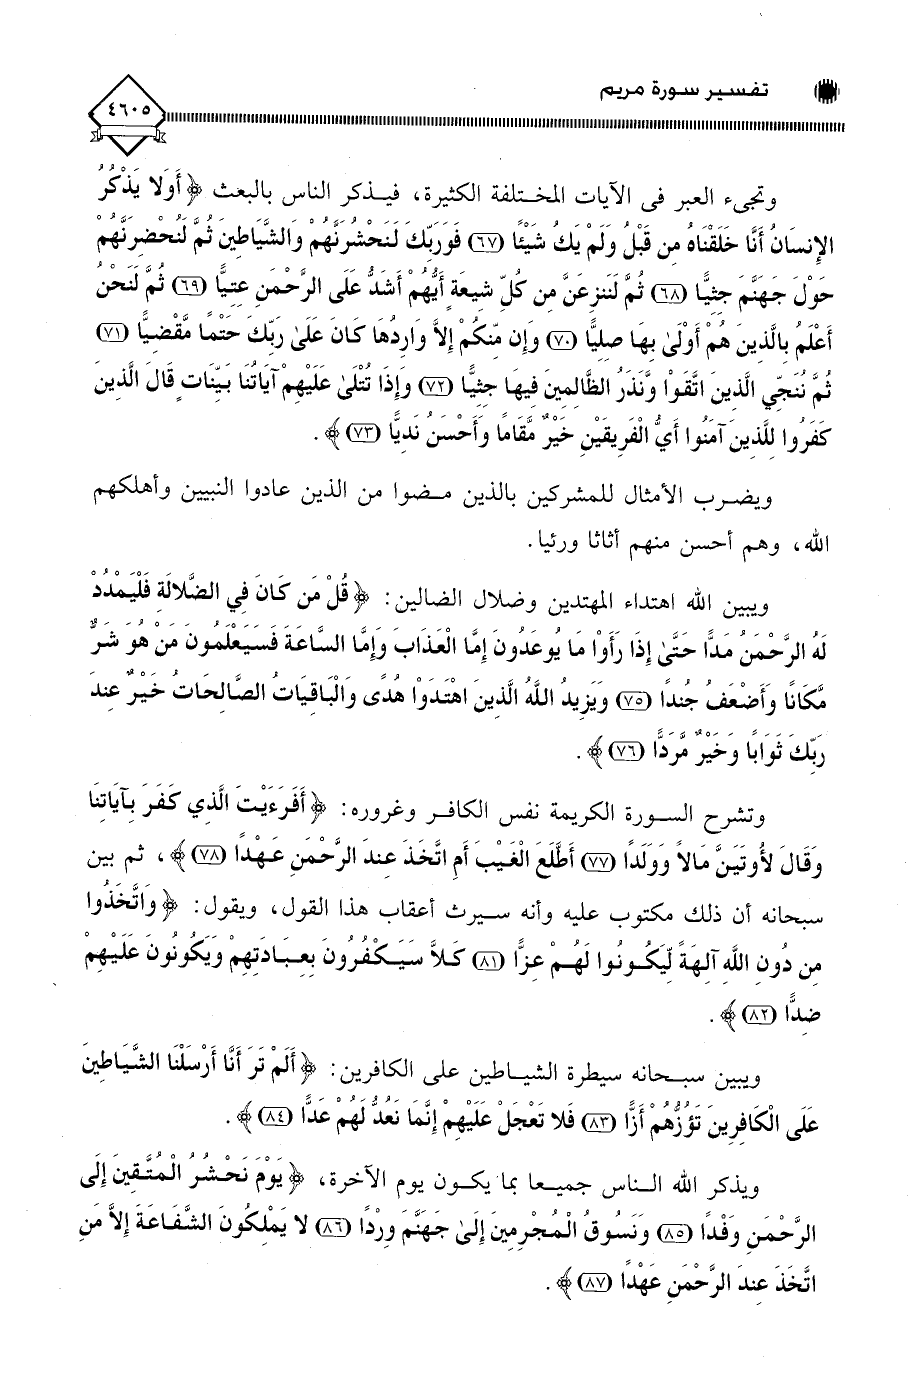 تفسير سورة مريم
٤٦٠٥
وتجىء العبر فى الآيات المختلفة الكثيرة، فيذكر الناس بالبعث ﴿ أَوَلا يَذْكُرُ
الإِنسَانُ أَنَّا خَلَقْنَاهُ مِن قَبْلُ وَلَمْ يَكُ شَيْئًا (٦٧) فَوَرَبِّكَ لَنَحْشُرَنَّهُمْ وَالشَّيَاطِينَ ثُمَّ لَنُحْضِرَنَّهُمْ
حَوْلَ جَهَنَّمَ جِثِيًّا (٦٨) ثُمَّ لَنَنزِعَنَّ مِن كُلِّ شِيعَةٍ أَيُّهُمْ أَشَدُّ عَلَى الرَّحْمَنِ عِتِيًّا (٦٩) ثُمَّ لَنَحْنُ
أَعْلَمُ بِالَّذِينَ هُمْ أَوْلَىٰ بِهَا صِلِيًّا (٧٠) وَإِن مِّنكُمْ إِلاَّ وَارِدُهَا كَانَ عَلَىٰ رَبِّكَ حَتْمًا مَّقْضِيًّا (٧١)
ثُمَّ نُنَجِّي الَّذِينَ اتَّقَوْا وَّنَذَرُ الظَّالِمِينَ فِيهَا جِثِيًّا (٧٢) وَإِذَا تُتْلَىٰ عَلَيْهِمْ آيَاتُنَا بَيِّنَاتٍ قَالَ الَّذِينَ
كَفَرُوا لِلَّذِينَ آمَنُوا أَيُّ الْفَرِيقَيْنِ خَيْرٌ مَّقَامًا وَأَحْسَنُ نَدِيًّا (٧٣) ﴾ .
ويضرب الأمثال للمشركين بالذين مضوا من الذين عادوا النبيين وأهلكهم
الله، وهم أحسن منهم أثاثا ورئيا.
ويبين الله اهتداء المهتدين وضلال الضالين: ﴿ قُلْ مَن كَانَ فِي الضَّلالَةِ فَلْيَمْدُدْ
لَهُ الرَّحْمَنُ مَدًّا حَتَّىٰ إِذَا رَأَوْا مَا يُوعَدُونَ إِمَّا الْعَذَابَ وَإِمَّا السَّاعَةَ فَسَيَعْلَمُونَ مَنْ هُوَ شَرٌّ
مَّكَانًا وَأَضْعَفُ جُندًا (٧٥) وَيَزِيدُ اللَّهُ الَّذِينَ اهْتَدَوْا هُدًى وَالْبَاقِيَاتُ الصَّالِحَاتُ خَيْرٌ عِندَ
رَبِّكَ ثَوَابًا وَخَيْرٌ مَّرَدًّا (٧٦) ﴾ .
وتشرح السورة الكريمة نفس الكافر وغروره: ﴿ أَفَرَءَيْتَ الَّذِي كَفَرَ بِآيَاتِنَا
وَقَالَ لأُوتَيَنَّ مَالاً وَوَلَدًا (٧٧) أَطَّلَعَ الْغَيْبَ أَمِ اتَّخَذَ عِندَ الرَّحْمَنِ عَهْدًا (٧٨) ﴾، ثم بين
سبحانه أن ذلك مكتوب عليه وأنه سيرث أعقاب هذا القول، ويقول: ﴿ وَاتَّخَذُوا
مِن دُونِ اللَّهِ آلِهَةً لِّيَكُونُوا لَهُمْ عِزًّا (٨١) كَلاَّ سَيَكْفُرُونَ بِعِبَادَتِهِمْ وَيَكُونُونَ عَلَيْهِمْ
ضِدًّا (٨٢) ﴾ .
ويبين سبحانه سيطرة الشياطين على الكافرين: ﴿ أَلَمْ تَرَ أَنَّا أَرْسَلْنَا الشَّيَاطِينَ
عَلَى الْكَافِرِينَ تَؤُزُّهُمْ أَزًّا (٨٣) فَلا تَعْجَلْ عَلَيْهِمْ إِنَّمَا نَعُدُّ لَهُمْ عَدًّا (٨٤) ﴾.
ويذكر الله الناس جميعا بما يكون يوم الآخرة، ﴿ يَوْمَ نَحْشُرُ الْمُتَّقِينَ إِلَى
الرَّحْمَنِ وَفْدًا (٨٥) وَنَسُوقُ الْمُجْرِمِينَ إِلَىٰ جَهَنَّمَ وِرْدًا (٨٦) لا يَمْلِكُونَ الشَّفَاعَةَ إِلاَّ مَنِ
اتَّخَذَ عِندَ الرَّحْمَنِ عَهْدًا (٨٧) ﴾ .